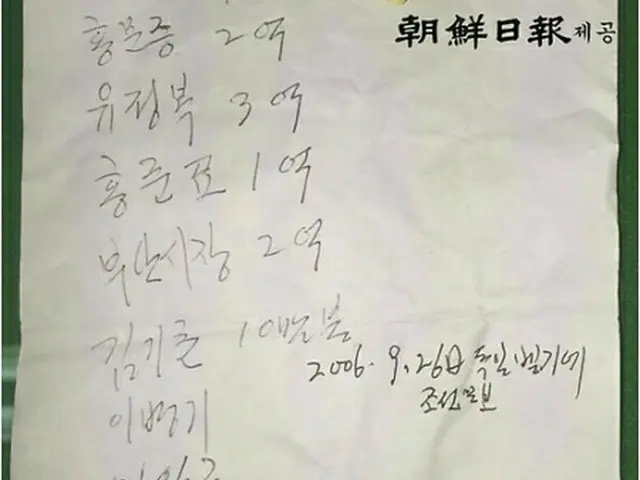 홍문종 2억
朝鮮日報 제공
유정복 3억
홍준표 1억
부산시장 2억
김기춘 10만불
2006. 9. 26日 독일 벨기에
조선일보
이병기